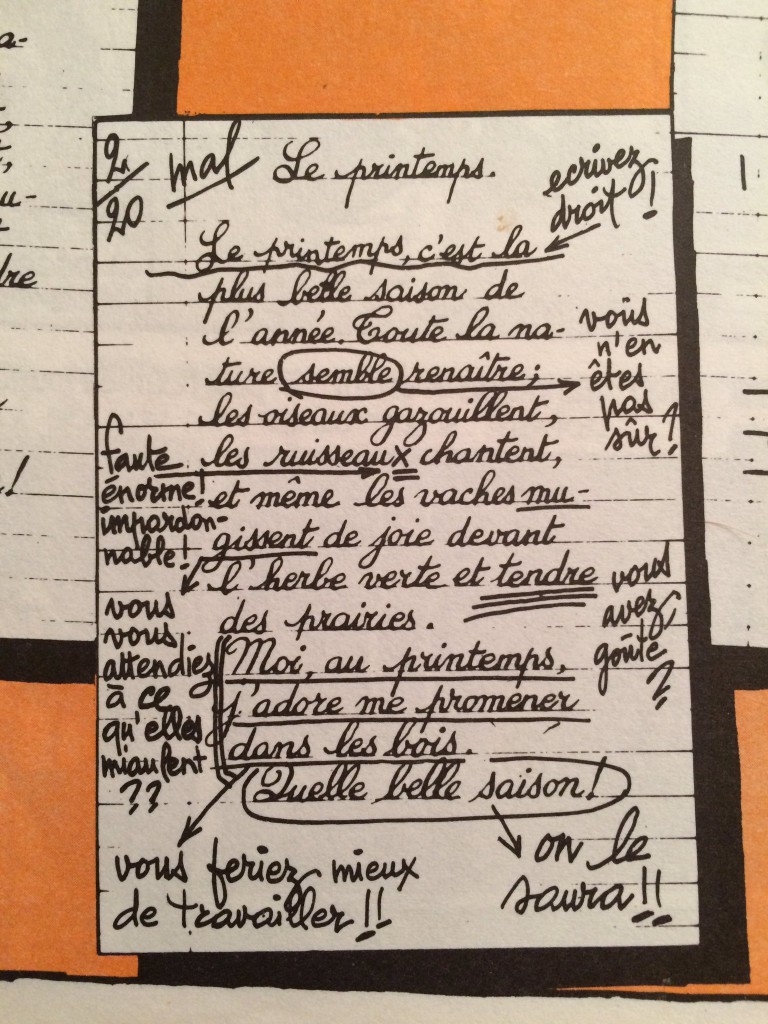 2/20 mal Le printemps.
ecrivez
droit!
Le printemps, c'est la
plus belle saison de
l'année. Toute la na-
ture semble renaître;
les oiseaux gazouillent,
les ruisseaux chantent,
et même les vaches mu-
gissent de joie devant
l'herbe verte et tendre
des prairies.
Moi, au printemps,
j'adore me promener
dans les bois.
Quelle belle saison!
voüs
n'en
êtes
pas
sûr?
faute
énorme!
impardon-
nable!
vous
vous
attendiez
à ce
qu'elles
miaulent
??
vous
avez
goûté
?
vous feriez mieux
de travailler!!
on le
saura!!
a-
u-
dre
!